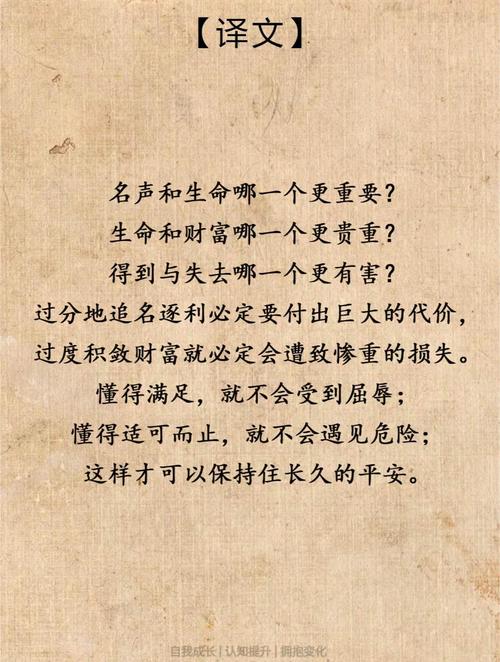 【译文】
名声和生命哪一个更重要？
生命和财富哪一个更贵重？
得到与失去哪一个更有害？
过分地追名逐利必定要付出巨大的代价，
过度积敛财富就必定会遭致惨重的损失。
懂得满足，就不会受到屈辱；
懂得适可而止，就不会遇见危险；
这样才可以保持住长久的平安。
自我成长 | 认知提升 | 拥抱变化